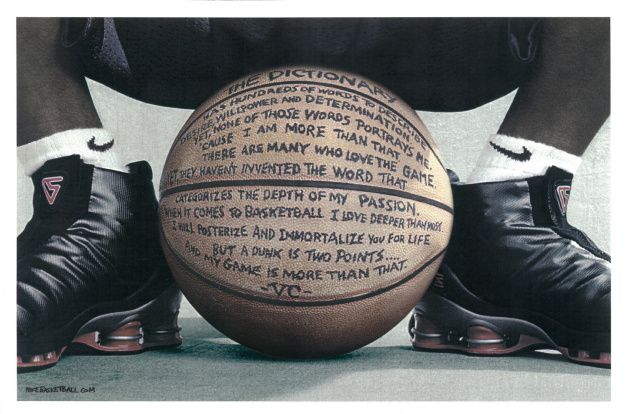 THE DICTIONARY
HAS HUNDREDS OF WORDS TO DESCRIBE
DESIRE, WILLPOWER AND DETERMINATION
YET NONE OF THOSE WORDS PORTRAYS ME.
'CAUSE I AM MORE THAN THAT
THERE ARE MANY WHO LOVE THE GAME.
YET THEY HAVEN'T INVENTED THE WORD THAT
CATEGORIZES THE DEPTH OF MY PASSION.
WHEN IT COMES TO BASKETBALL I LOVE DEEPER THAN MOST.
I WILL POSTERIZE AND IMMORTALIZE YOU FOR LIFE
BUT A DUNK IS TWO POINTS....
AND MY GAME IS MORE THAN THAT.
-VC-
NIKEBASKETBALL.COM